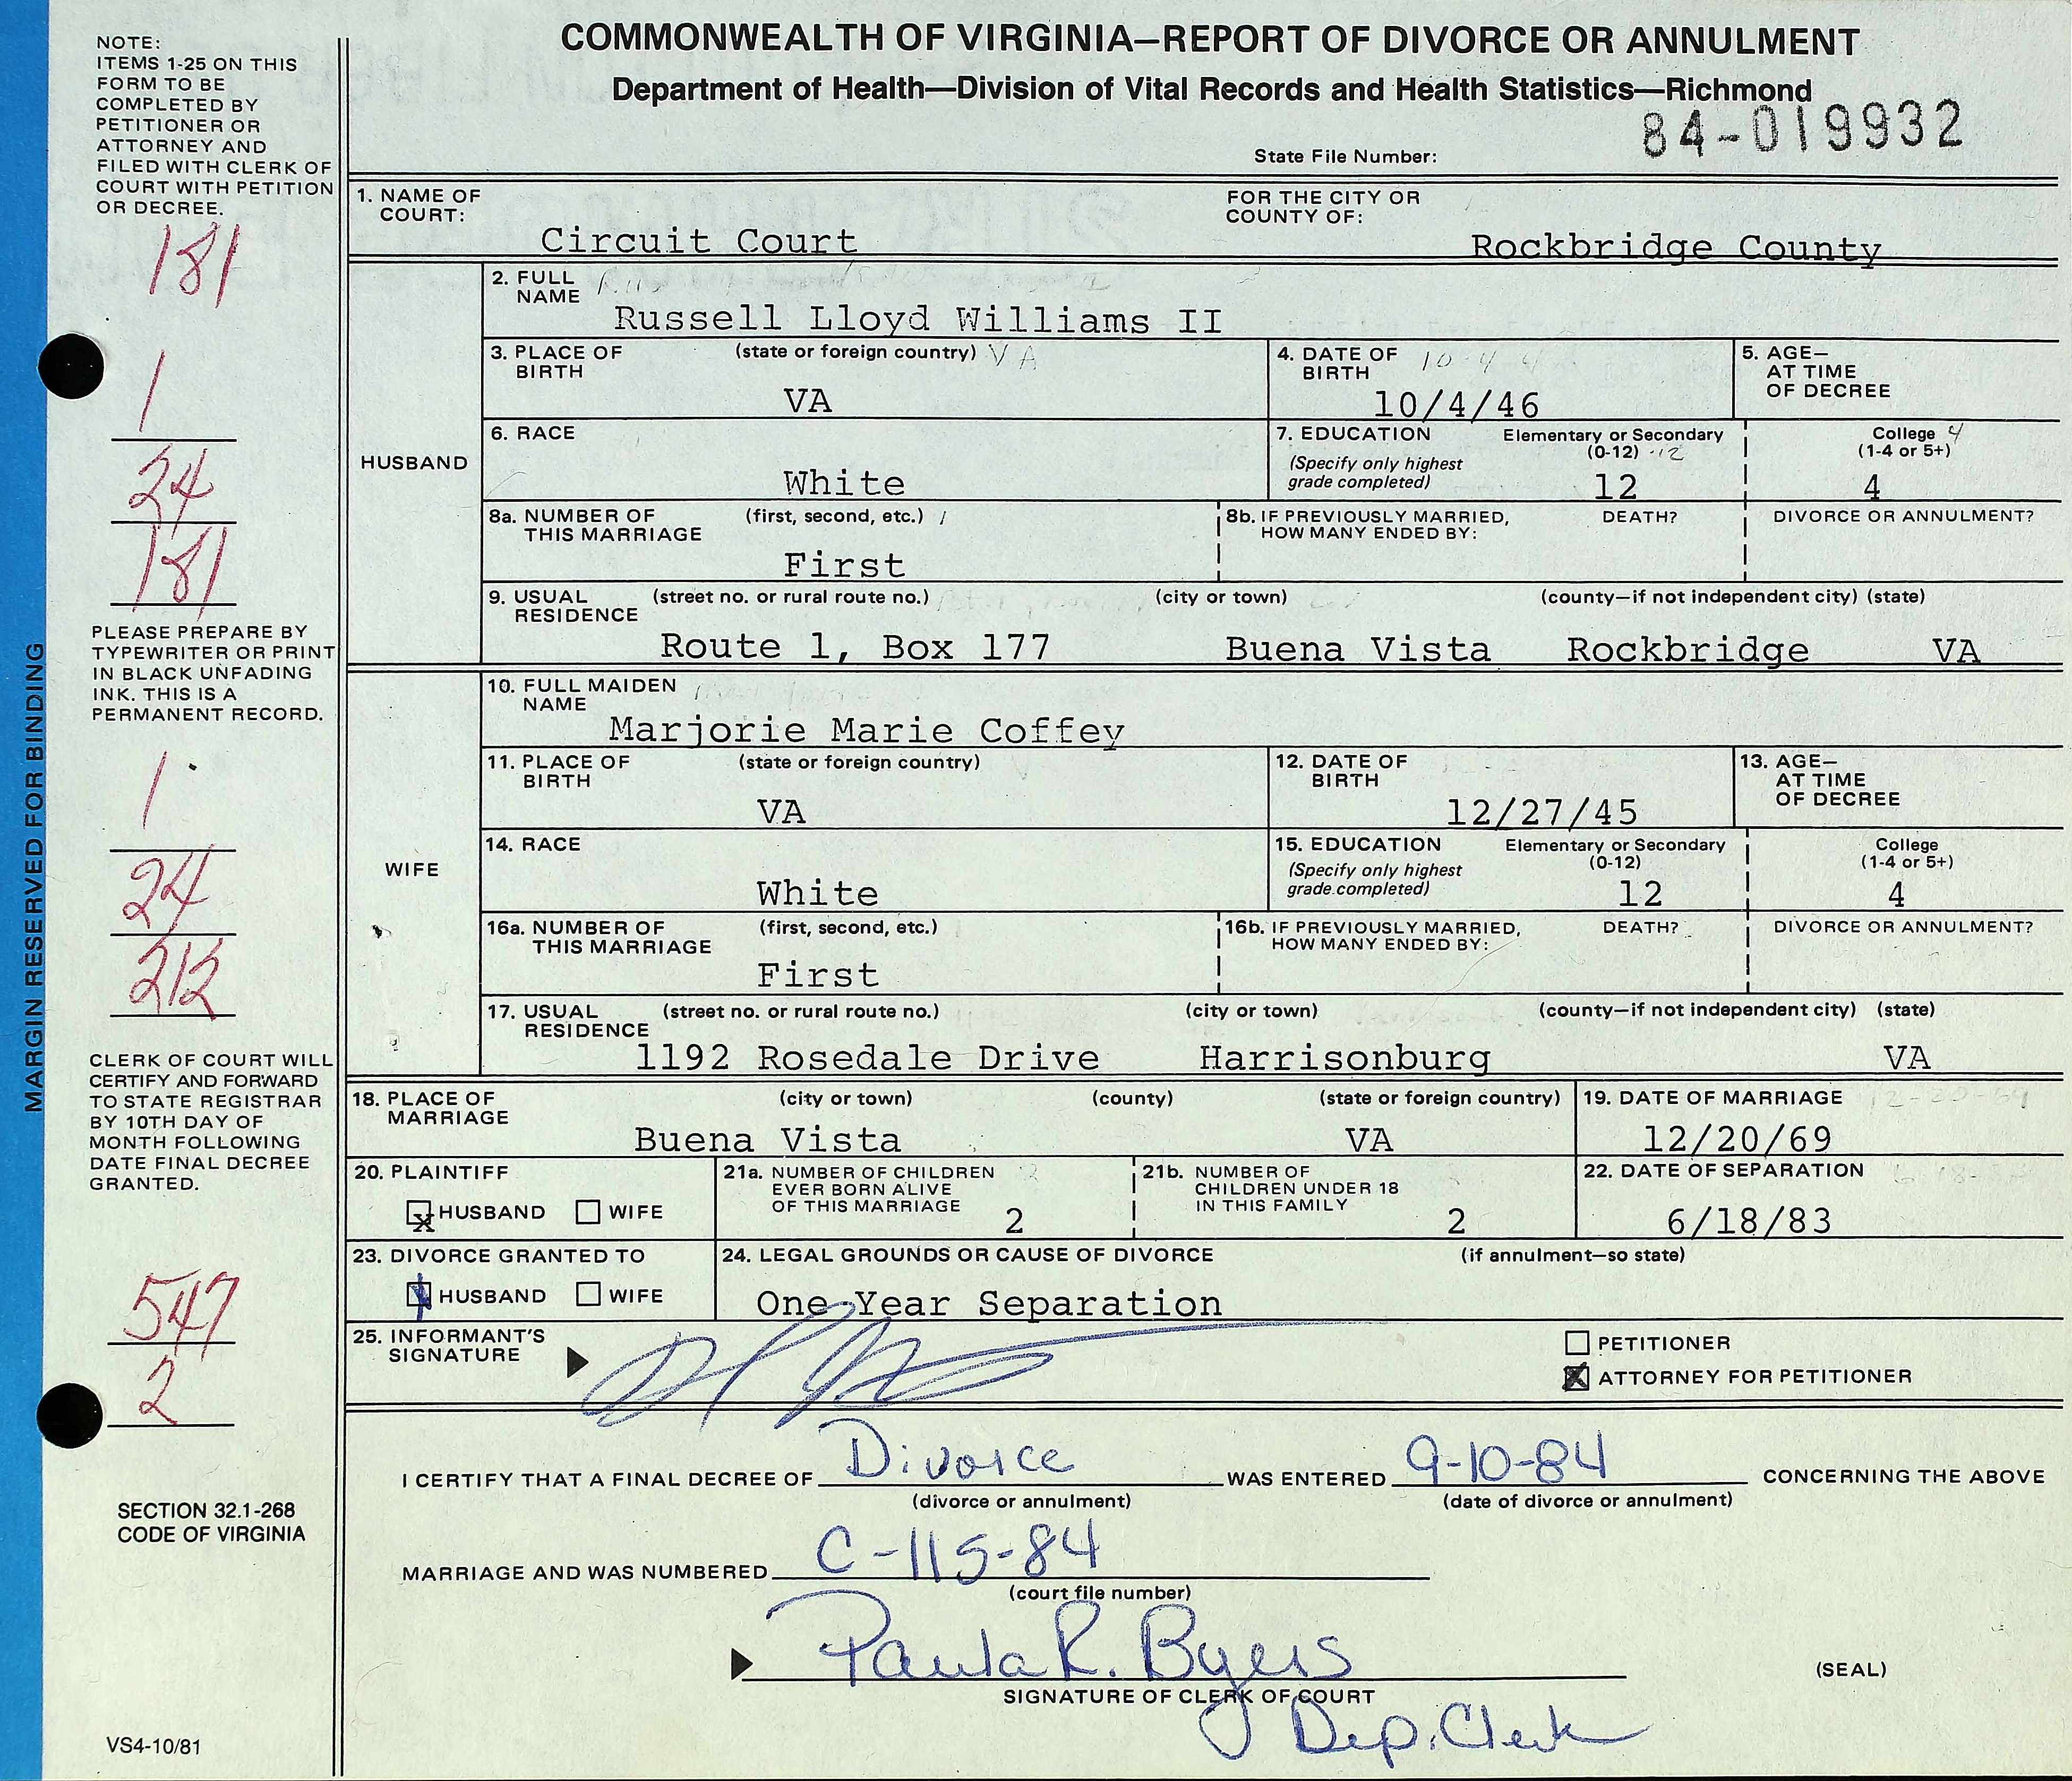 COMMONWEALTH OF VIRGINIA—REPORT OF DIVORCE OR ANNULMENT
Department of Health—Division of Vital Records and Health Statistics—Richmond
84-019932
State File Number:
NOTE:
ITEMS 1-25 ON THIS
FORM TO BE
COMPLETED BY
PETITIONER OR
ATTORNEY AND
FILED WITH CLERK OF
COURT WITH PETITION
OR DECREE.
181
1
24
181
PLEASE PREPARE BY
TYPEWRITER OR PRINT
IN BLACK UNFADING
INK. THIS IS A
PERMANENT RECORD.
1
24
212
CLERK OF COURT WILL
CERTIFY AND FORWARD
TO STATE REGISTRAR
BY 10TH DAY OF
MONTH FOLLOWING
DATE FINAL DECREE
GRANTED.
547
2
SECTION 32.1-268
CODE OF VIRGINIA
VS4-10/81
MARGIN RESERVED FOR BINDING
1. NAME OF COURT: Circuit Court FOR THE CITY OR COUNTY OF: Rockbridge County
HUSBAND
2. FULL NAME Russell Lloyd Williams II
3. PLACE OF BIRTH (state or foreign country) VA VA
4. DATE OF BIRTH 10/4/46
5. AGE—AT TIME OF DECREE
6. RACE White
7. EDUCATION (Specify only highest grade completed) Elementary or Secondary (0-12) 12 12 College 4 (1-4 or 5+) 4
8a. NUMBER OF THIS MARRIAGE (first, second, etc.) 1 First
8b. IF PREVIOUSLY MARRIED, HOW MANY ENDED BY: DEATH? DIVORCE OR ANNULMENT?
9. USUAL RESIDENCE (street no. or rural route no.) (city or town) (county—if not independent city) (state)
Route 1, Box 177 Buena Vista Rockbridge VA
WIFE
10. FULL MAIDEN NAME Marjorie Marie Coffey
11. PLACE OF BIRTH (state or foreign country) VA
12. DATE OF BIRTH 12/27/45
13. AGE—AT TIME OF DECREE
14. RACE White
15. EDUCATION (Specify only highest grade completed) Elementary or Secondary (0-12) 12 College (1-4 or 5+) 4
16a. NUMBER OF THIS MARRIAGE (first, second, etc.) First
16b. IF PREVIOUSLY MARRIED, HOW MANY ENDED BY: DEATH? DIVORCE OR ANNULMENT?
17. USUAL RESIDENCE (street no. or rural route no.) (city or town) (county—if not independent city) (state)
1192 Rosedale Drive Harrisonburg VA
18. PLACE OF MARRIAGE (city or town) (county) (state or foreign country)
Buena Vista VA
19. DATE OF MARRIAGE 12/20/69
20. PLAINTIFF
x HUSBAND WIFE
21a. NUMBER OF CHILDREN EVER BORN ALIVE OF THIS MARRIAGE 2
21b. NUMBER OF CHILDREN UNDER 18 IN THIS FAMILY 2
22. DATE OF SEPARATION 6/18/83
23. DIVORCE GRANTED TO
HUSBAND WIFE
24. LEGAL GROUNDS OR CAUSE OF DIVORCE (if annulment—so state)
One Year Separation
25. INFORMANT'S SIGNATURE
PETITIONER
X ATTORNEY FOR PETITIONER
I CERTIFY THAT A FINAL DECREE OF Divorce WAS ENTERED 9-10-84 CONCERNING THE ABOVE
(divorce or annulment) (date of divorce or annulment)
MARRIAGE AND WAS NUMBERED C-115-84
(court file number)
Paula R. Byers
SIGNATURE OF CLERK OF COURT (SEAL)
Dep. Clerk